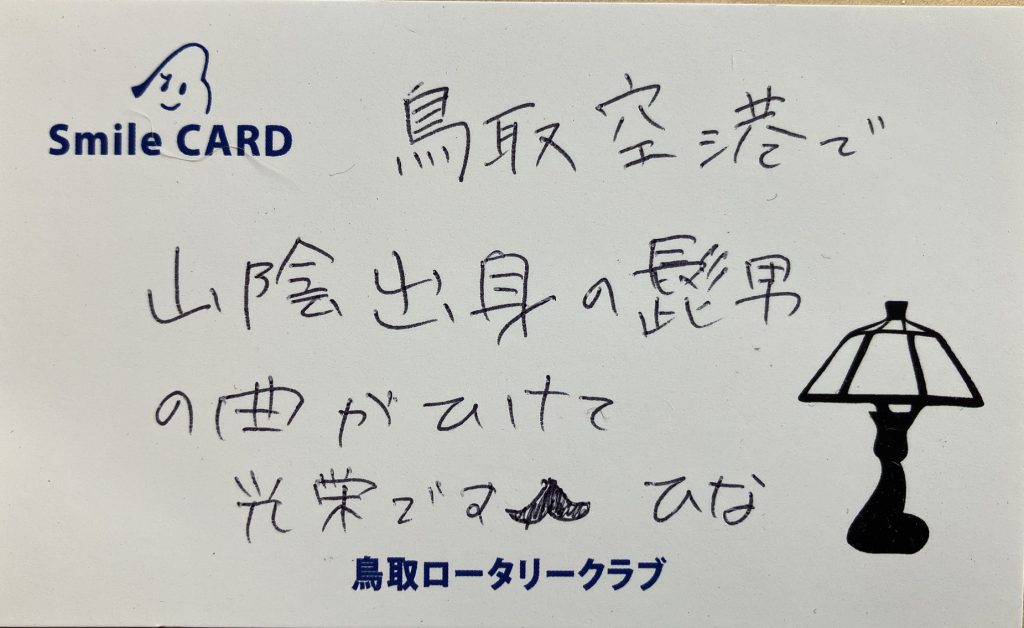 Smile CARD
鳥取空港で
山陰出身の髭男
の曲がひけて
光栄です
ひな
鳥取ロータリークラブ